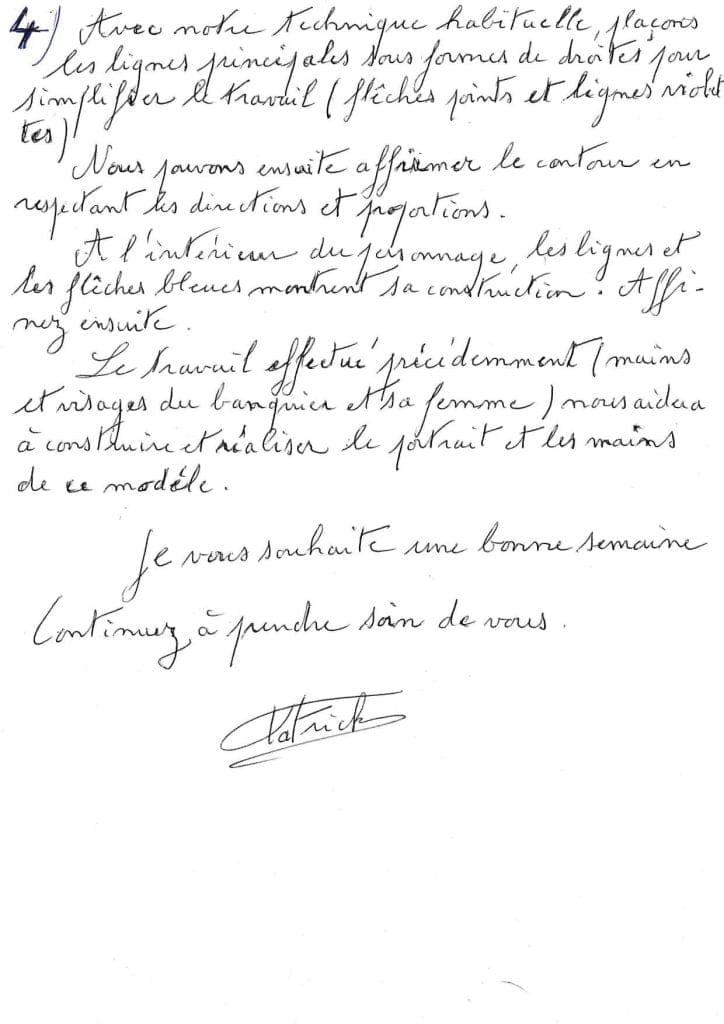 4) Avec notre technique habituelle, plaçons
les lignes principales sous formes de droites pour
simplifier le travail (flêches points et lignes violet
tes)
Nous pouvons ensuite affiner le contour en
respectant les directions et proportions.
A l'intérieur du personnage, les lignes et
les flêches bleues montrent sa construction. Affi-
nez ensuite.
Le travail effectué précédemment (mains
et visages du banquier et sa femme) nous aidera
à construire et réaliser le portrait et les mains
de ce modéle.
Je vous souhaite une bonne semaine
Continuez à prendre soin de vous.
Patrick